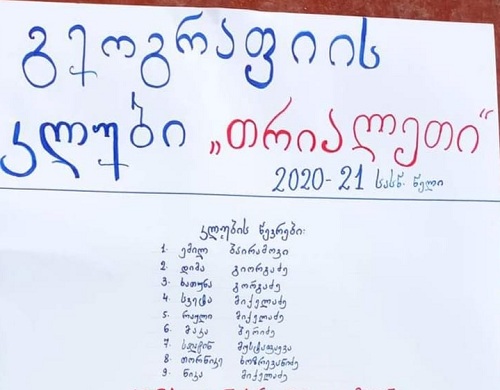 გეოგრაფიის
კლუბი „თრიალეთი“
2020-21 სასწ. წელი
კლუბის წევრები:
1. ემილ ბაირამოვი
2. დიმა გიორგაძე
3. ხათუნა გორგაძე
4. სვეტა მიქელაძე
5. რაული მიქელაძე
6. მაკა ბერიძე
7. მუსტაფაევა
8. თორნიკე ხოზრევანიძე
9. ნიკა მიქელაძე